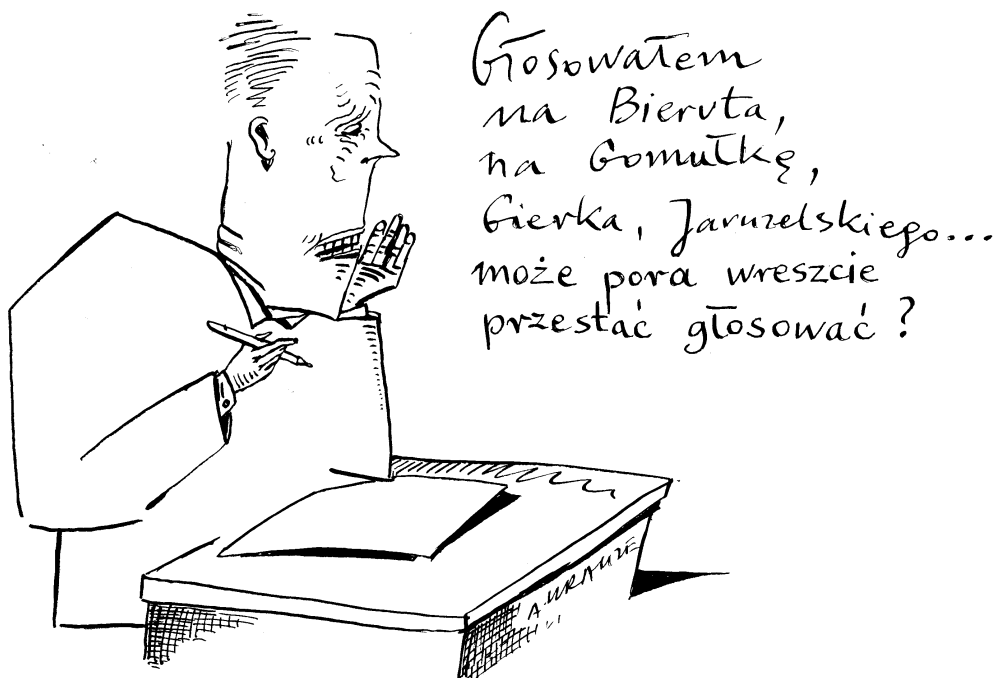 Głosowałem
na Bieruta,
na Gomułkę,
Gierka, Jaruzelskiego...
może pora wreszcie
przestać głosować?
A. KRAUZE